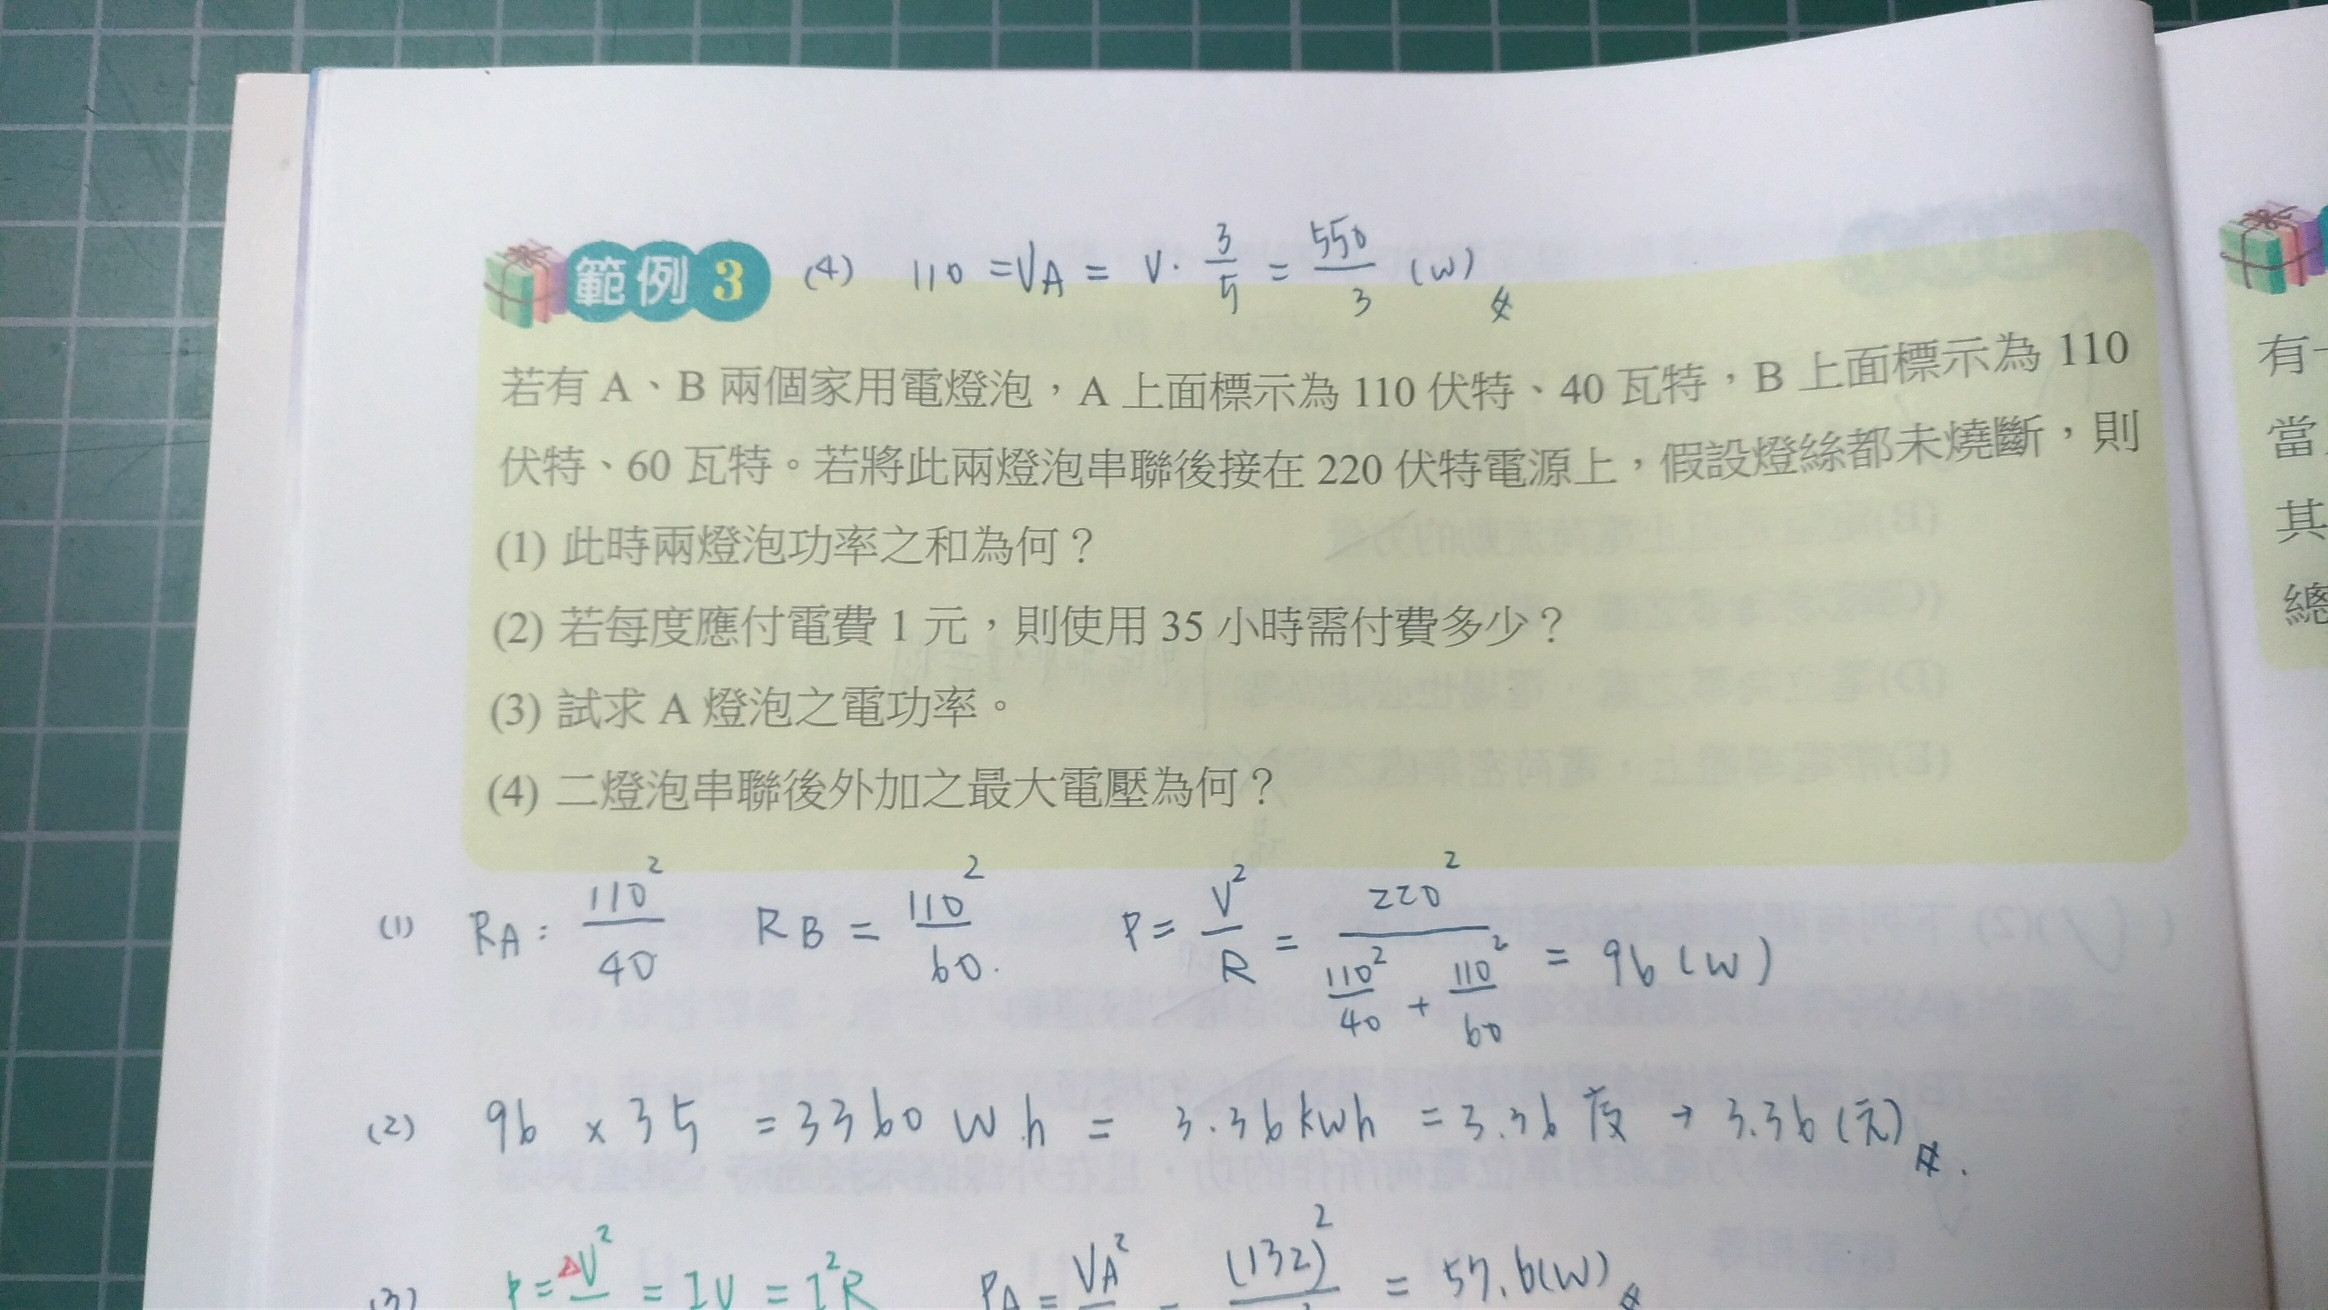 範例 3 (4) 110 = VA = V · 3/5 = 550/3 (W)
若有 A、B 兩個家用電燈泡，A 上面標示為 110 伏特、40 瓦特，B 上面標示為 110
伏特、60 瓦特。若將此兩燈泡串聯後接在 220 伏特電源上，假設燈絲都未燒斷，則
(1) 此時兩燈泡功率之和為何？
(2) 若每度應付電費 1 元，則使用 35 小時需付費多少？
(3) 試求 A 燈泡之電功率。
(4) 二燈泡串聯後外加之最大電壓為何？
(1) RA = 110²/40 RB = 110²/60. P = V²/R = 220²/(110²/40 + 110²/60) = 96 (W)
(2) 96 × 35 = 3360 Wh = 3.36 kWh = 3.36 度 → 3.36 (元)
(3) P = ΔV² = IV = I²R PA = VA² = (132)² = 57.6 (W)
有一
當
其
總